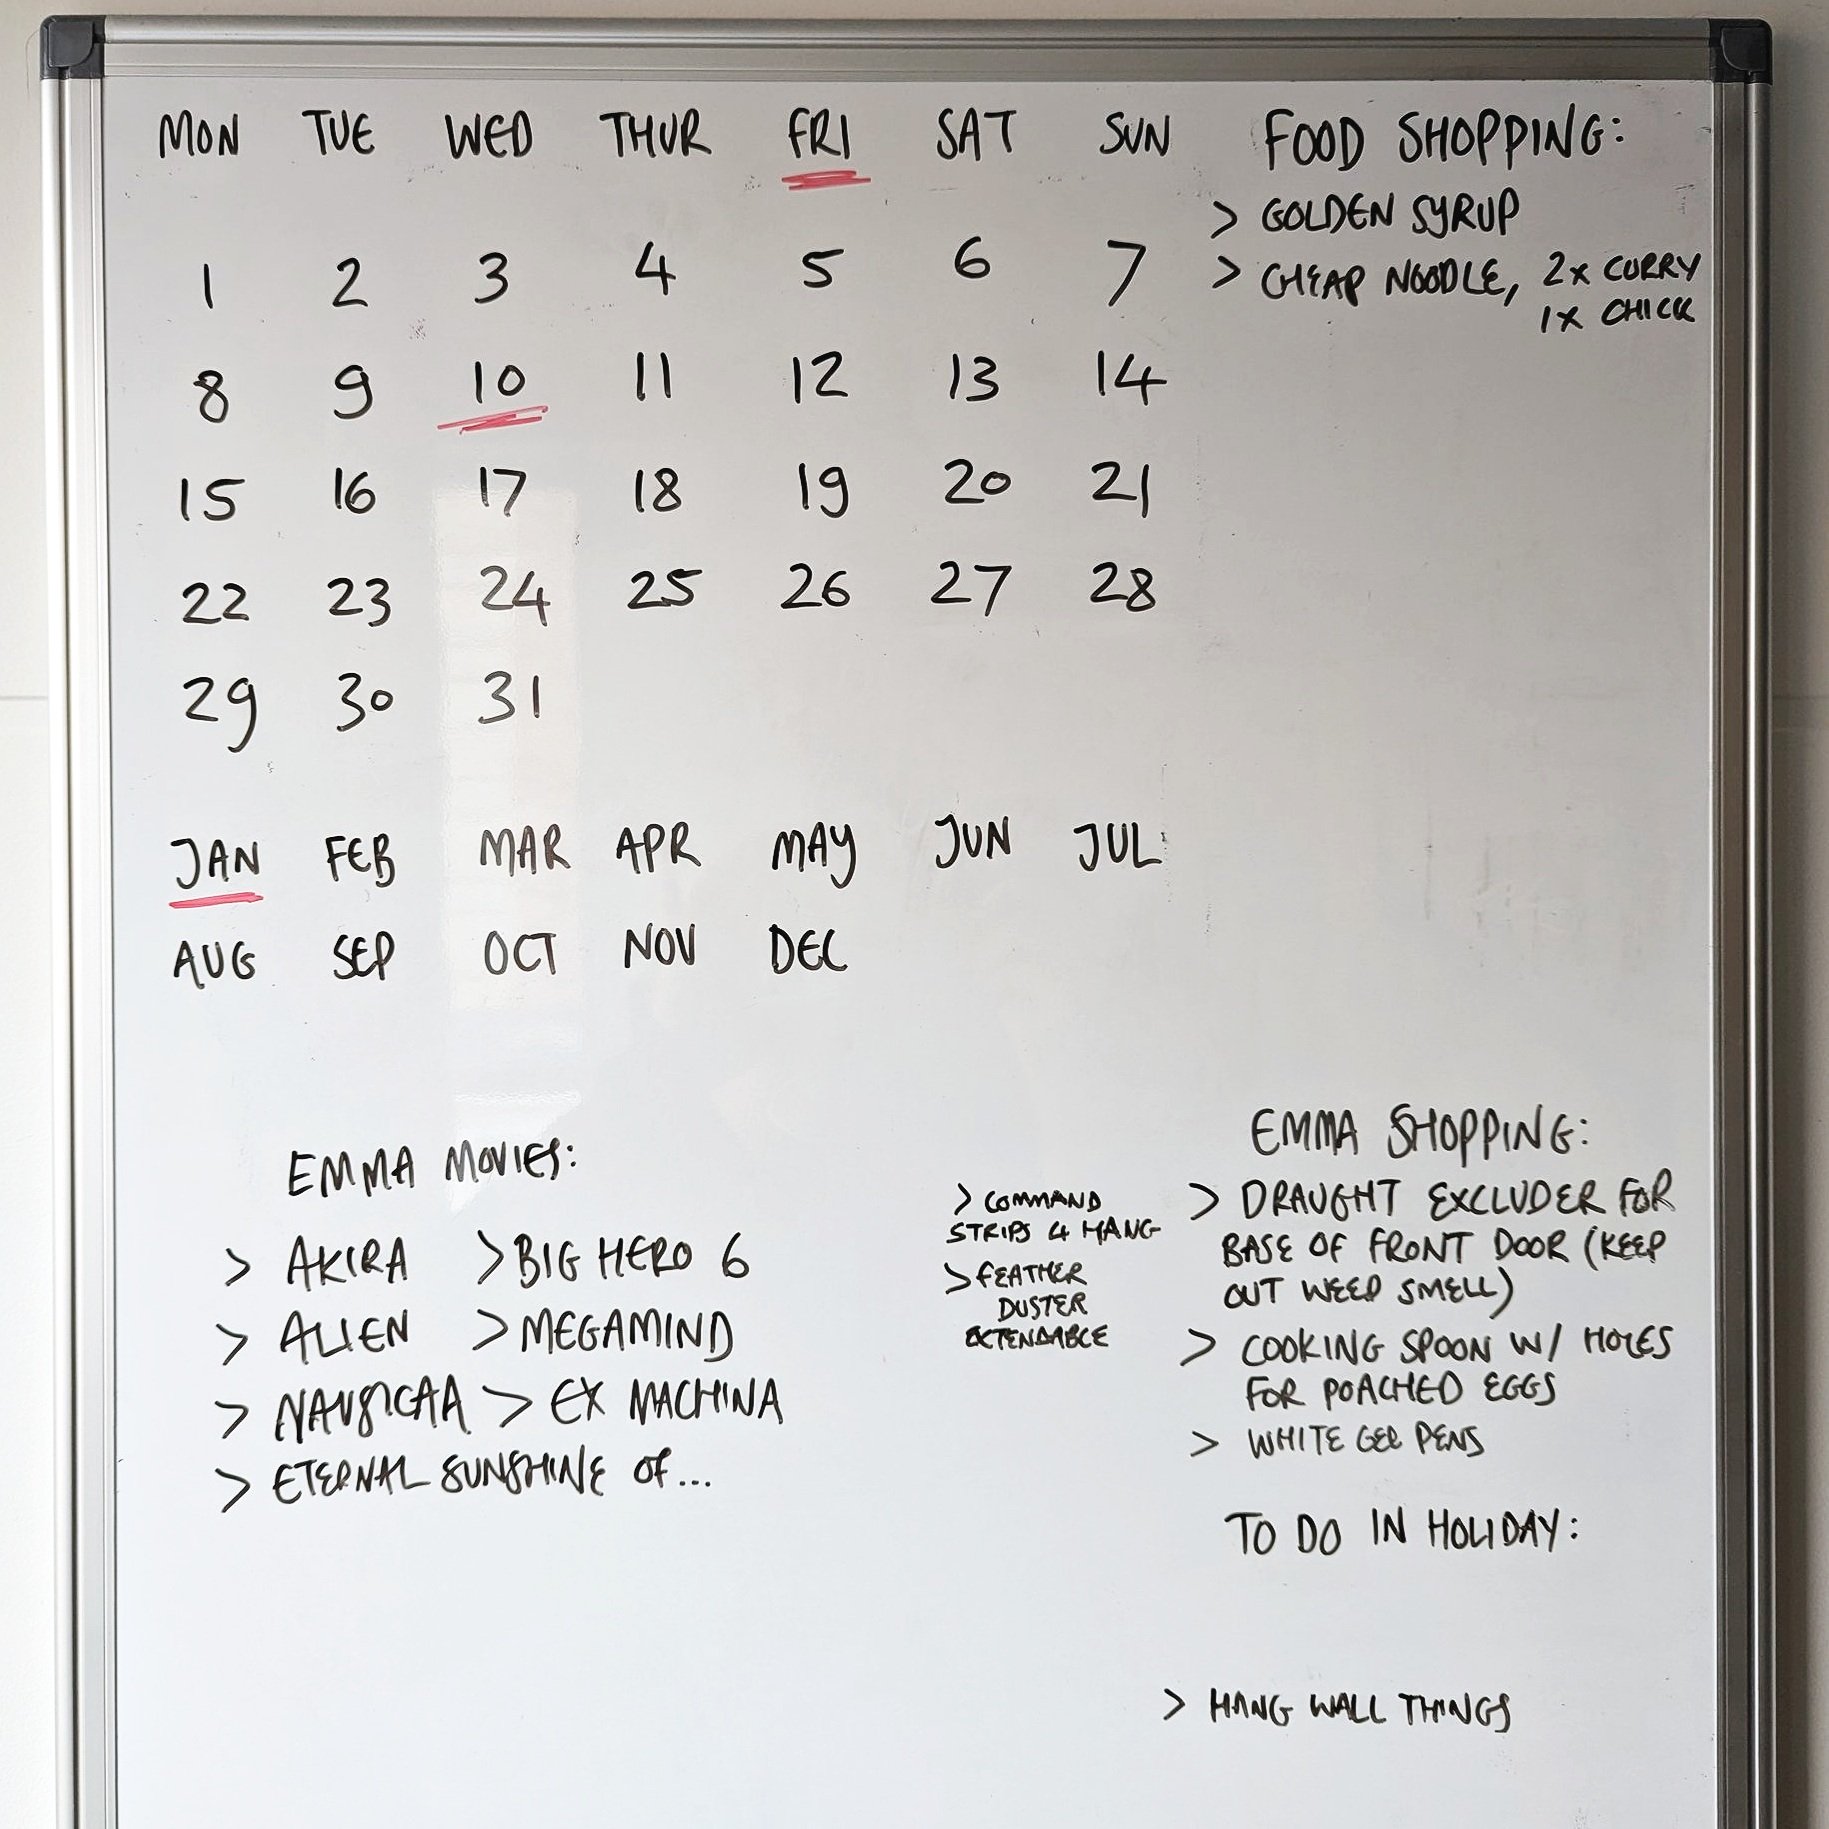 MON TUE WED THUR FRI SAT SUN
1 2 3 4 5 6 7
8 9 10 11 12 13 14
15 16 17 18 19 20 21
22 23 24 25 26 27 28
29 30 31
JAN FEB MAR APR MAY JUN JUL
AUG SEP OCT NOV DEC
FOOD SHOPPING:
> GOLDEN SYRUP
> CHEAP NOODLE, 2x CURRY
1x CHICK
EMMA MOVIES:
> AKIRA > BIG HERO 6
> ALIEN > MEGAMIND
> NAUSICAA > EX MACHINA
> ETERNAL SUNSHINE OF...
> COMMAND
STRIPS 4 HANG
> FEATHER
DUSTER
EXTENDABLE
EMMA SHOPPING:
> DRAUGHT EXCLUDER FOR
BASE OF FRONT DOOR (KEEP
OUT WEED SMELL)
> COOKING SPOON W/ HOLES
FOR POACHED EGGS
> WHITE GEL PENS
TO DO IN HOLIDAY:
> HANG WALL THINGS